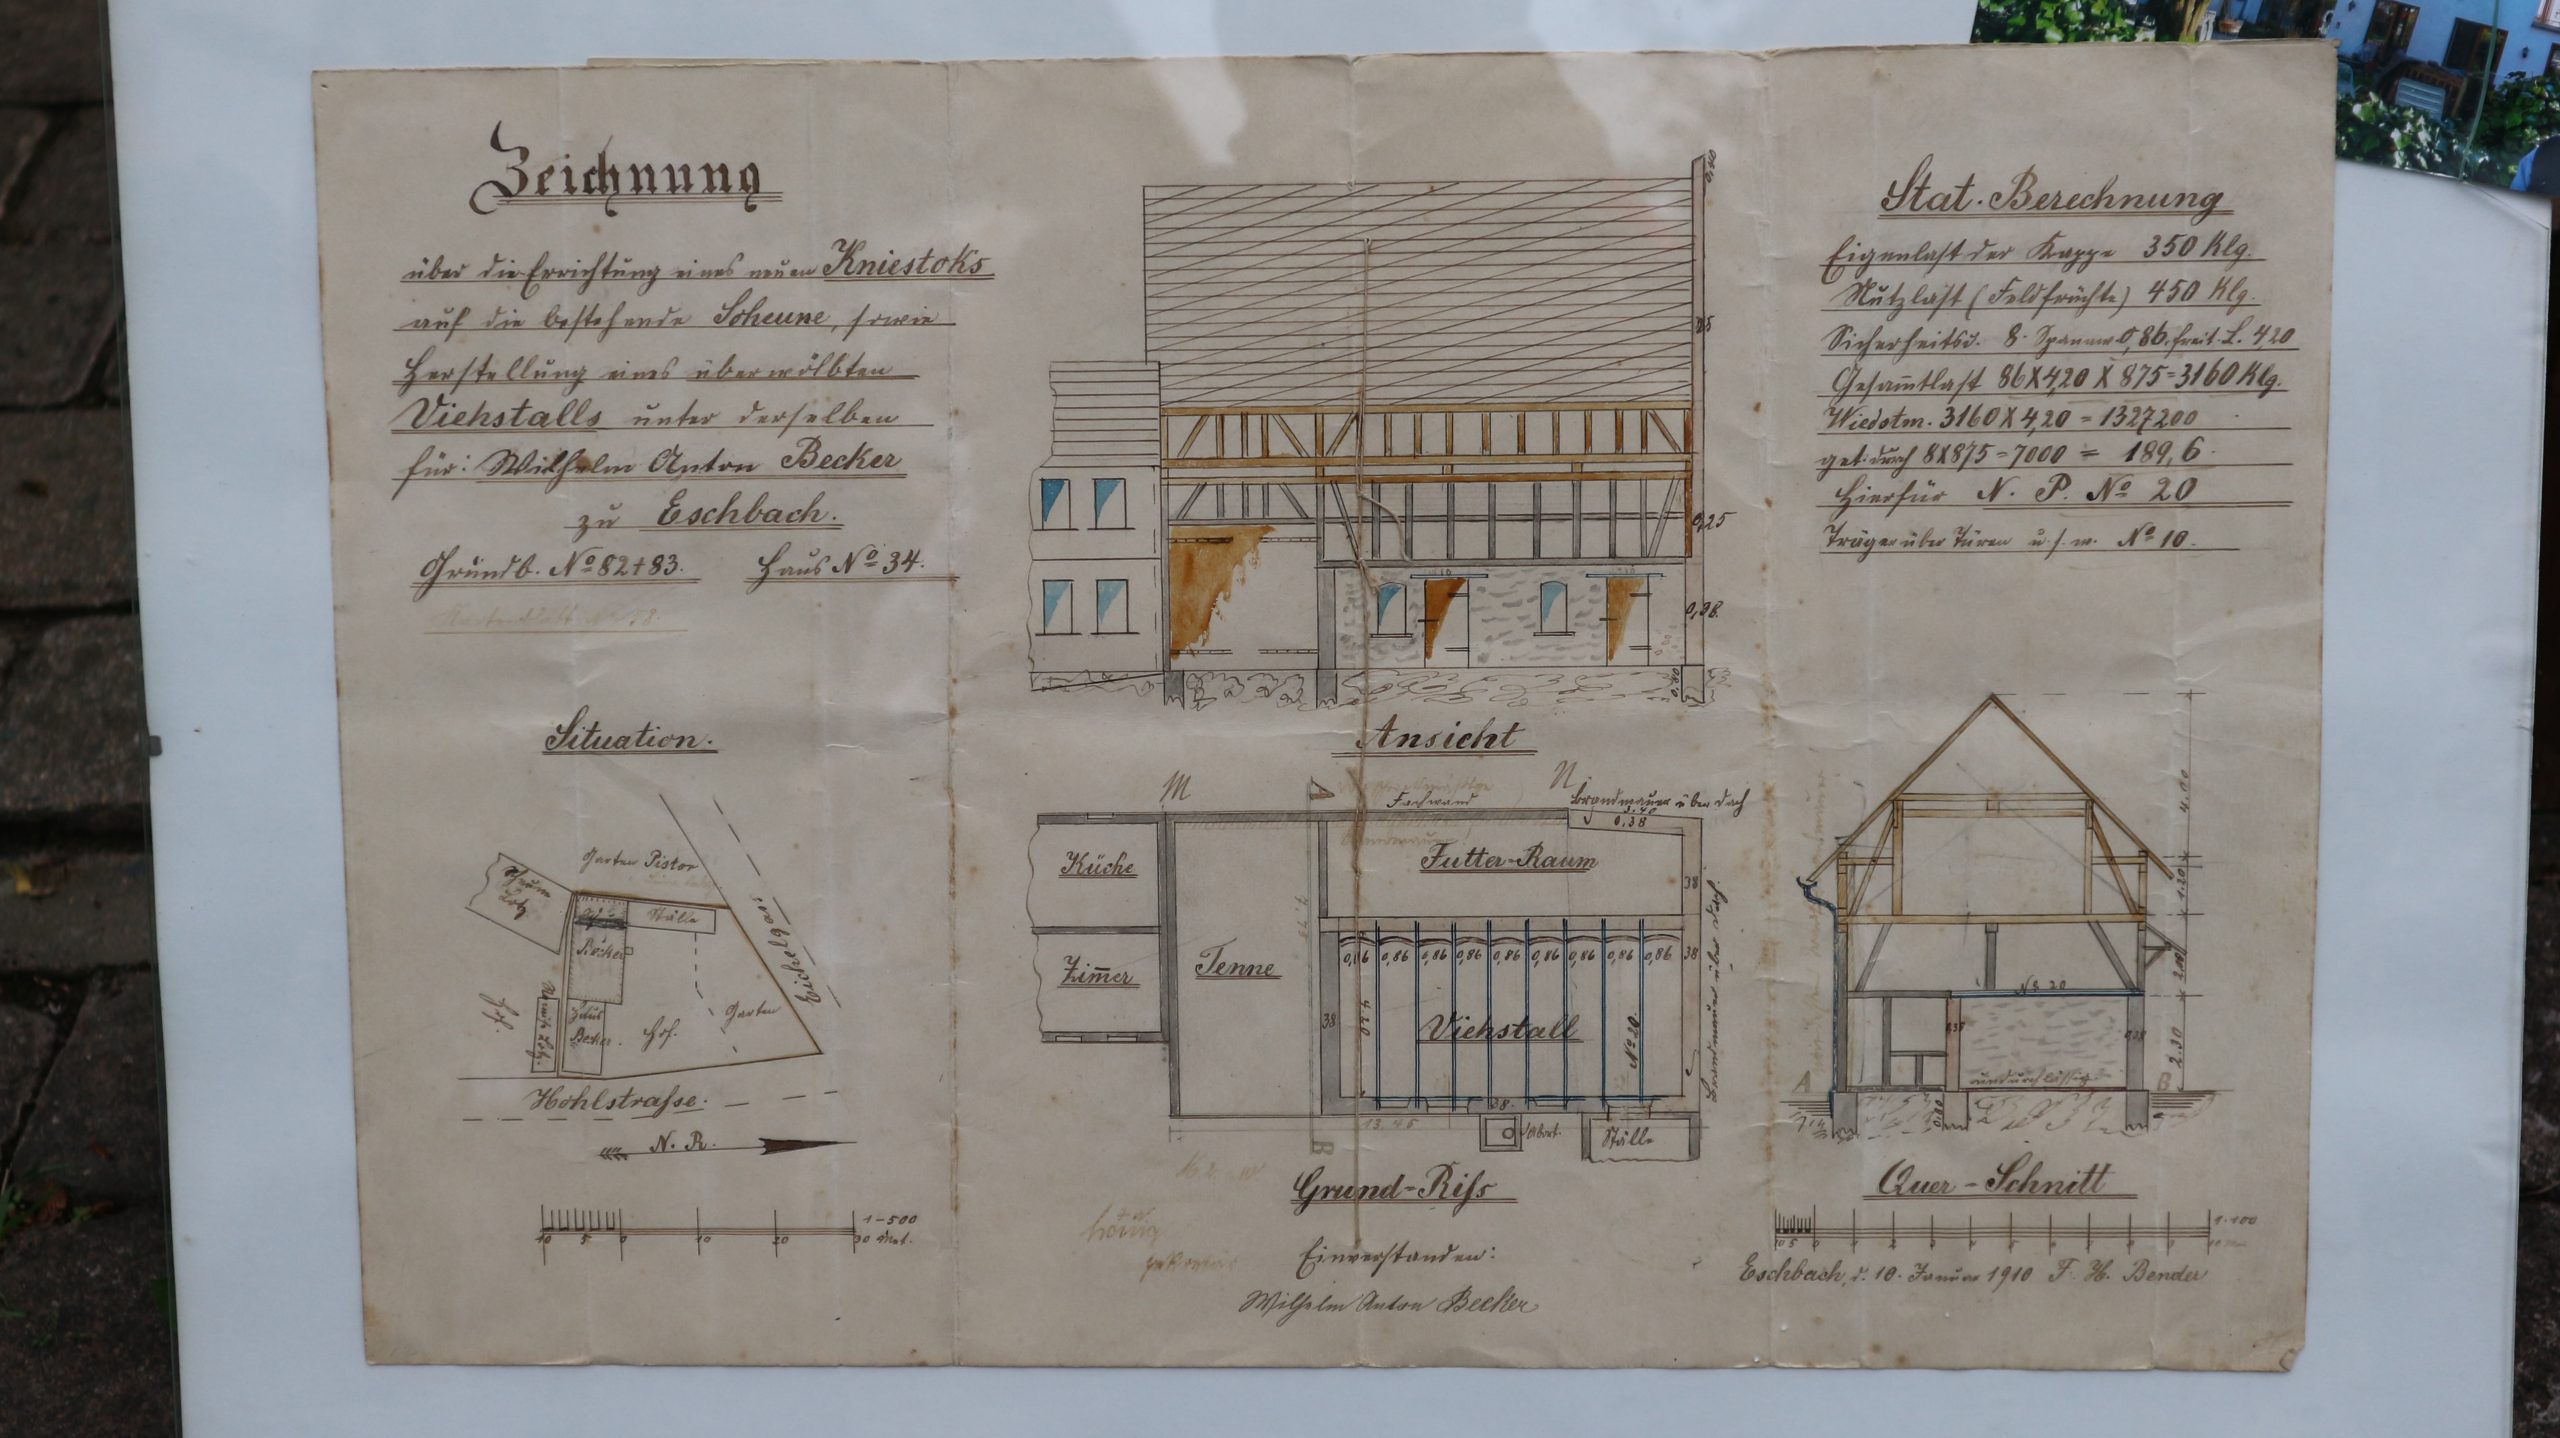 Zeichnung
über die Errichtung eines neuen Kniestoks
auf die bestehende Scheune, sowie
Herstellung eines überwölbten
Viehstalls unter derselben
für: Wilhelm Anton Becker
zu Eschbach.
Grundb. No 82+83. Haus No 34.
Situation.
Garten Pistor
Scheune
Ställe
Becker
Haus
Becker.
Hof.
Hof.
Garten
Eichelgass
Hohlstrasse.
N. R.
1-500
10 5 0 10 20 30 Met.
0,40
0,25
0,38.
Ansicht
M
A
N
Fachwand
Brandmauer über Dach
0,38
Küche
Zimmer
Tenne
Futter-Raum
38
38
0,86 0,86 0,86 0,86 0,86 0,86 0,86 0,86
38
4,20
Viehstall
No 20.
Brandmauer über Dach
38.
13.45
Abort.
Ställe
B
Grund-Riss
Einverstanden:
Wilhelm Anton Becker
Stat. Berechnung
Eigenlast der Kappe 350 Klg.
Nutzlast (Feldfrüchte) 450 Klg.
Sicherheitsd. 8. Spannw 0,86. freit. L. 420
Gesammtlast 86X4,20 X 875=3160 Klg.
Wiedstm. 3160X4,20 = 1327200
get: durch 8X875=7000 = 189,6.
Hierfür N. P. No 20
Träger über Türen u. s. w. No 10.
4.00
1.20
2.00
No 20
0,38
0,38
2.30
undurchlässig
A
B
Quer-Schnitt
1-100
Eschbach, d. 10. Januar 1910 F. H. Bender